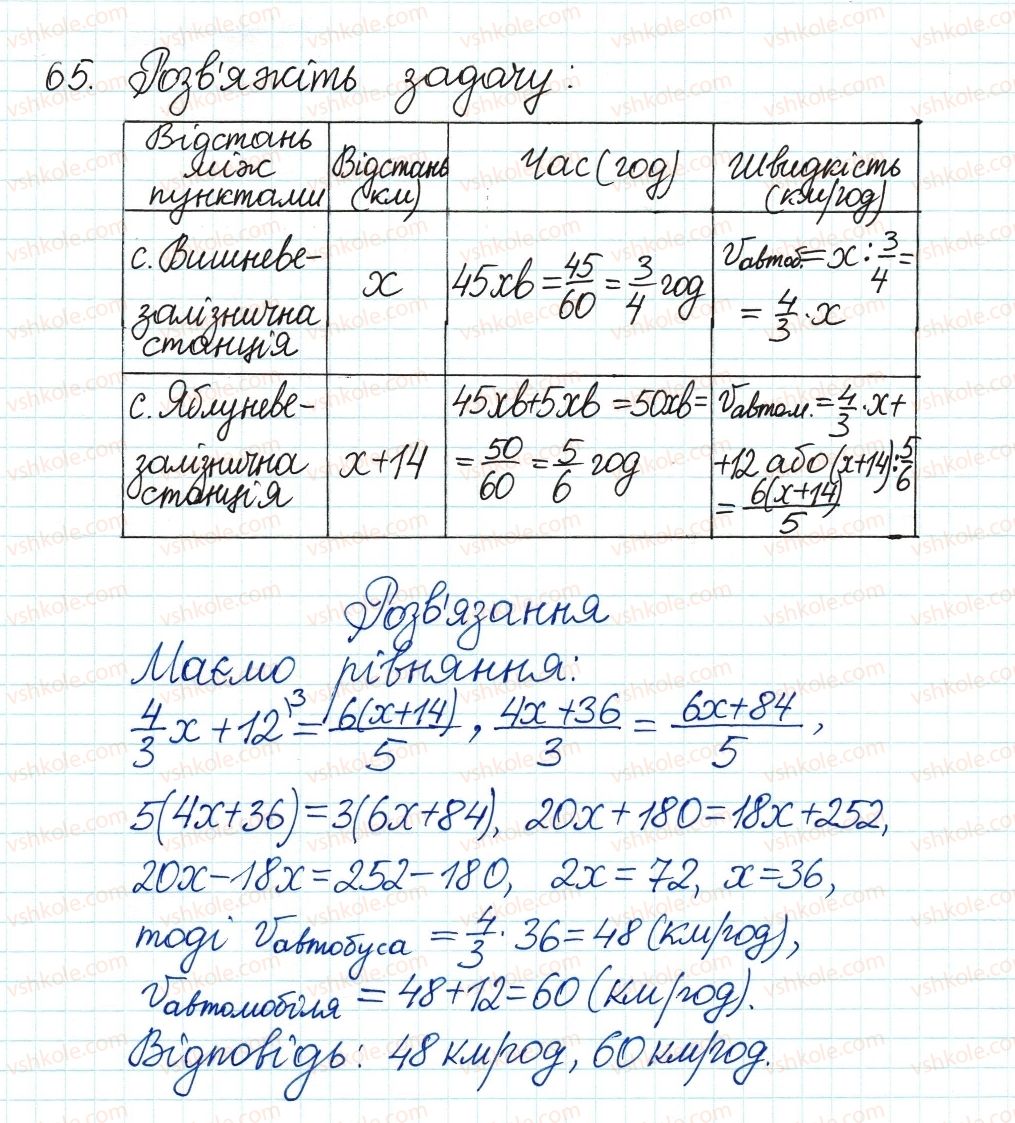 65. Розв'яжіть задачу:
Відстань між пунктами | Відстань (км) | Час (год) | Швидкість (км/год)
с. Вишневе- залізнична станція | x | 45хв = 45/60 = 3/4 год | Vавтоб. = x : 3/4 = = 4/3 · x
с. Яблуневе- залізнична станція | x+14 | 45хв+5хв = 50хв = = 50/60 = 5/6 год | Vавтом. = 4/3 · x + +12 або (x+14) : 5/6 = 6(x+14)/5
Розв'язання
Маємо рівняння:
4/3 x + 12^\3 = 6(x+14)/5, (4x+36)/3 = (6x+84)/5,
5(4x+36)=3(6x+84), 20x+180=18x+252,
20x-18x=252-180, 2x=72, x=36,
тоді Vавтобуса = 4/3 · 36=48 (км/год),
Vавтомобіля = 48+12=60 (км/год).
Відповідь: 48 км/год, 60 км/год.